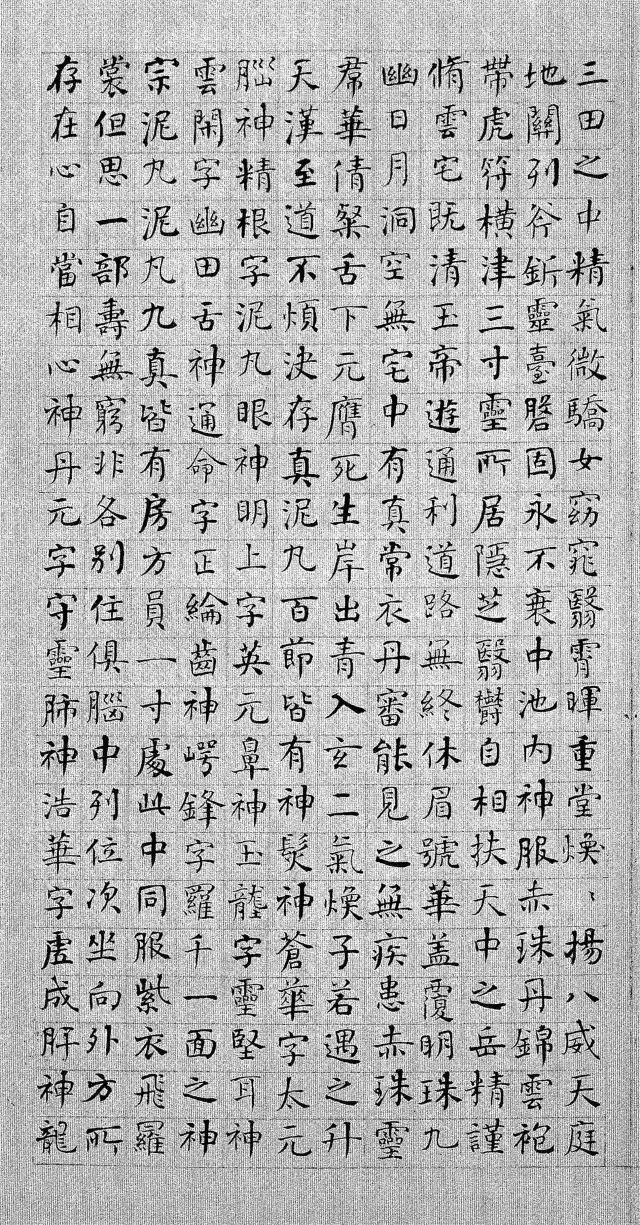 三田之中精氣微驕女窈窕翳霄暉重堂煥〻揚八威天庭
地關列斧釿靈臺盤固永不衰中池內神服赤珠丹錦雲袍
帶虎符橫津三寸靈所居隱芝翳鬱自相扶天中之岳精謹
脩雲宅既清玉帝遊通利道路無終休眉號華盖覆明珠九
幽日月洞空無宅中有真常衣丹審能見之無疾患赤珠靈
帬華倩粲舌下元膺死生岸出青入玄二氣煥子若遇之升
天漢至道不煩決存真泥丸百節皆有神髮神蒼華字太元
腦神精根字泥丸眼神明上字英元鼻神玉壟字靈堅耳神
雲閑字幽田舌神通命字正綸齒神崿鋒字羅千一面之神
宗泥丸泥丸九真皆有房方員一寸處此中同服紫衣飛羅
裳但思一部壽無窮非各別住俱腦中列位次坐向外方所
存在心自當相心神丹元字守靈肺神浩華字虛成肝神龍